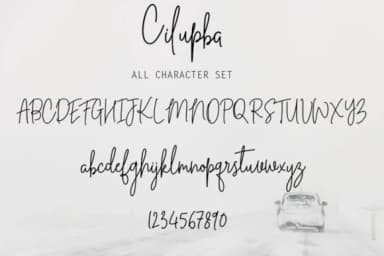 Cilupba
ALL CHARACTER SET
ABCDEFGHIJKLMNOPQRSTUVWXYZ
abcdefghijklmnopqrstuvwxyz
1234567890